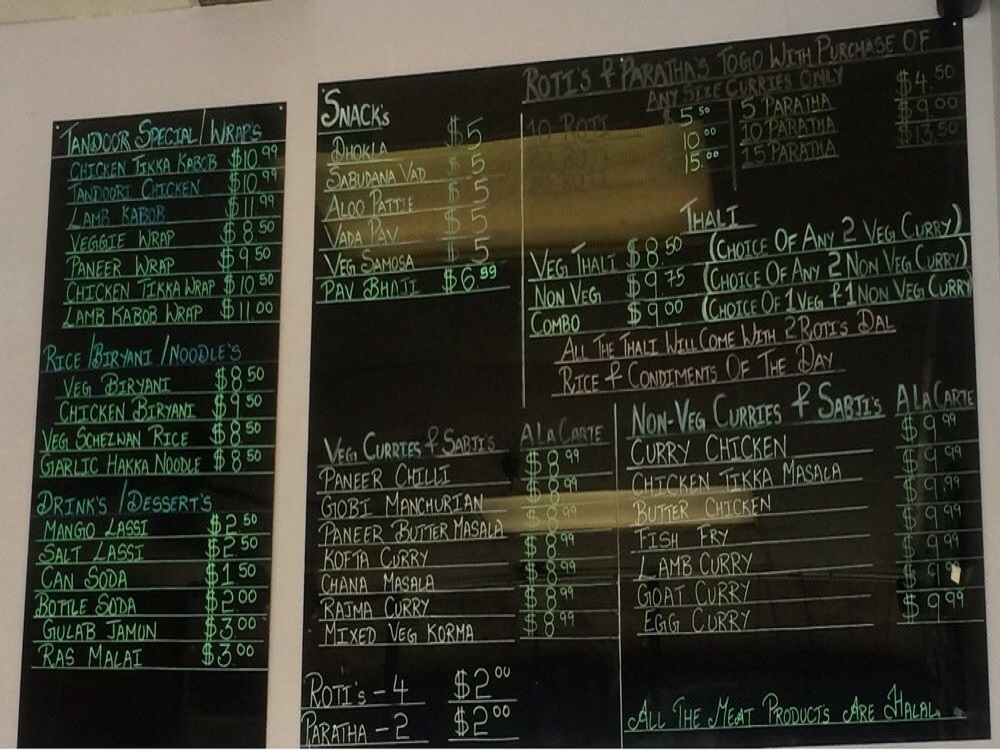 TANDOOR SPECIAL/WRAP'S
CHICKEN TIKKA KABOB $10.99
TANDOORI CHICKEN $10.99
LAMB KABOB $11.99
VEGGIE WRAP $8.50
PANEER WRAP $9.50
CHICKEN TIKKA WRAP $10.50
LAMB KABOB WRAP $11.00
RICE/BIRYANI/NOODLE'S
VEG BIRYANI $8.50
CHICKEN BIRYANI $9.50
VEG SCHEZWAN RICE $8.50
GARLIC HAKKA NOODLE $8.50
DRINK'S/DESSERT'S
MANGO LASSI $2.50
SALT LASSI $2.50
CAN SODA $1.50
BOTTLE SODA $2.00
GULAB JAMUN $3.00
RAS MALAI $3.00
SNACK'S
DHOKLA $5
SABUDANA VAD $5
ALOO PATTIE $5
VADA PAV $5
VEG SAMOSA $5
PAV BHAJI $6.99
ROTI'S & PARATHA'S TOGO WITH PURCHASE OF
ANY SIZE CURRIES ONLY
10 ROTI 5.50
10.00
15.00
5 PARATHA $4.50
10 PARATHA $9.00
15 PARATHA $13.50
THALI
VEG THALI $8.50 (CHOICE OF ANY 2 VEG CURRY)
NON VEG $9.75 (CHOICE OF ANY 2 NON VEG CURRY)
COMBO $9.00 (CHOICE OF 1 VEG & 1 NON VEG CURRY
ALL THE THALI WILL COME WITH 2 ROTI'S DAL
RICE & CONDIMENTS OF THE DAY
VEG CURRIES & SABJI'S A LA CARTE
PANEER CHILLI $8.99
GOBI MANCHURIAN $8.99
PANEER BUTTER MASALA $8.99
KOFTA CURRY $8.99
CHANA MASALA $8.99
RAJMA CURRY $8.99
MIXED VEG KORMA $8.99
ROTI'S - 4 $2.00
PARATHA - 2 $2.00
NON-VEG CURRIES & SABJI'S A LA CARTE
CURRY CHICKEN $9.99
CHICKEN TIKKA MASALA $9.99
BUTTER CHICKEN $9.99
FISH FRY $9.99
LAMB CURRY $9.99
GOAT CURRY $9.9
EGG CURRY $9.99
ALL THE MEAT PRODUCTS ARE HALAL.